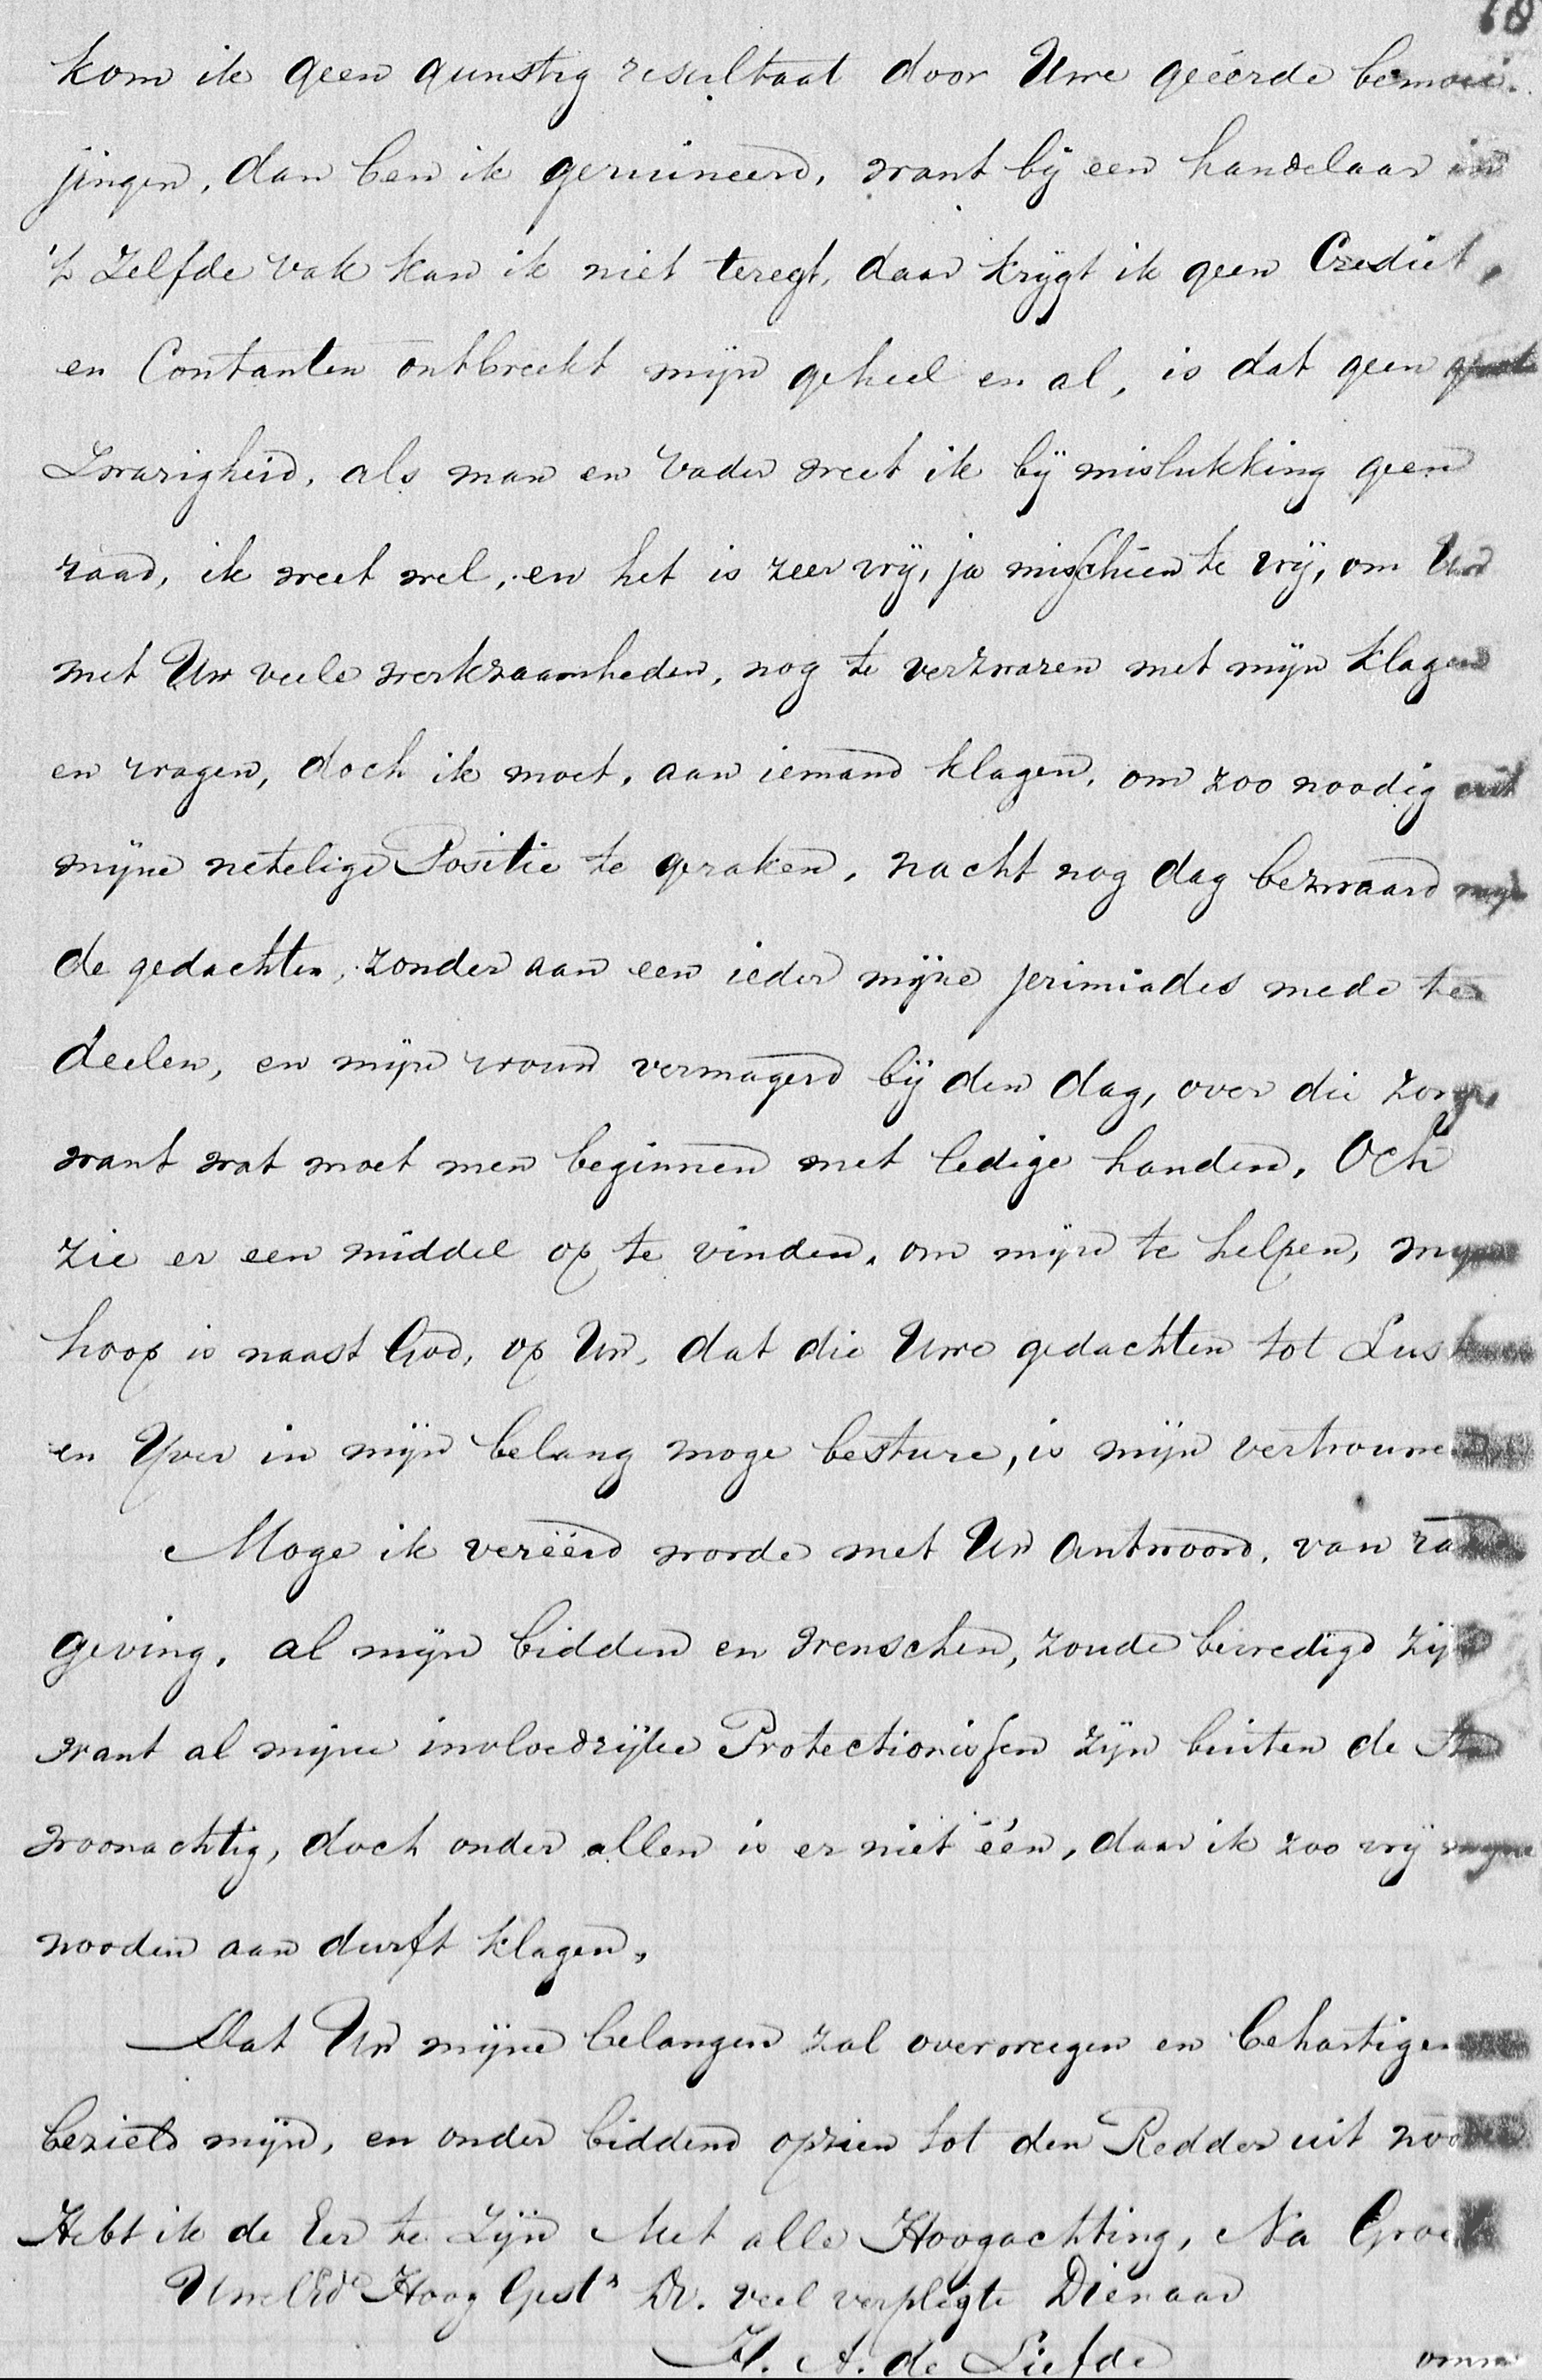 18
kom ik geen gunstig resultaat door Uwe geëerde bemoei-
jingen, dan ben ik geruineerd, want bij een handelaar in
't zelfde vak kan ik niet teregt, daar krijgt ik geen Crediet,
en Contanten ontbreekt mijn geheel en al, is dat geen groote
Zwarigheid, als man en Vader weet ik bij mislukking geen
raad, ik weet wel, en het is zeer vrij, ja misschien te vrij, om Uw
met Uw veele werkzaamheden, nog te verzwaren met mijn klagen
en vragen, doch ik moet, aan iemand klagen, om zoo noodig uit
mijne netelige Positie te geraken, nacht nog dag bezwaard mijn
de gedachten, zonder aan een ieder mijne jerimiades mede te
deelen, en mijn vrouw vermagerd bij den dag, over die zorg,
want wat moet men beginnen met ledige handen, Och
zie er een middel op te vinden, om mijn te helpen, mijne
hoop is naast God, op Uw, dat die Uwe gedachten tot Lust
en Yver in mijn belang moge besture, is mijn vertrouwen
Moge ik vereërd worde met Uw Antwoord, van raad
geving, al mijn bidden en wenschen, zoude bevredigd zijn
want al mijne invloedrijke Protectionissen zijn buiten de Stad
woonachtig, doch onder allen is er niet één, daar ik zoo vrij mijne
nooden aan durft klagen,
Dat Uw mijne belangen zal overweegen en behartigen
bezield mijn, en onder biddend opzien tot den Redder uit nooden
Hebt ik de Eer te Zijn Met alle Hoogachting, Na Groet
UwelEd Hoog Gest Dr. veel verpligte Dienaar
H. A. de Liefde